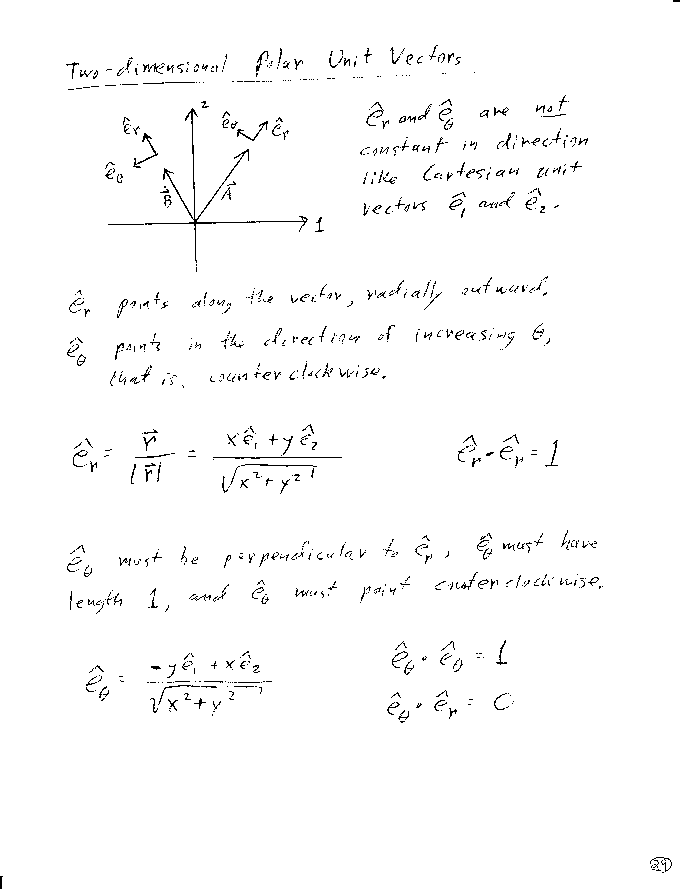 Two-dimensional Polar Unit Vectors
2
1
ê_r
ê_θ
B⃗
ê_θ
ê_r
A⃗
ê_r and ê_θ are not
constant in direction
like Cartesian unit
vectors ê_1 and ê_2.
ê_r points along the vector, radially outward.
ê_θ points in the direction of increasing θ,
that is, counterclockwise.
ê_r = r⃗ / |r⃗| = (xê_1 + yê_2) / √(x² + y²)
ê_r · ê_r = 1
ê_θ must be perpendicular to ê_r, ê_θ must have
length 1, and ê_θ must point counterclockwise.
ê_θ = (-yê_1 + xê_2) / √(x² + y²)
ê_θ · ê_θ = 1
ê_θ · ê_r = 0
29